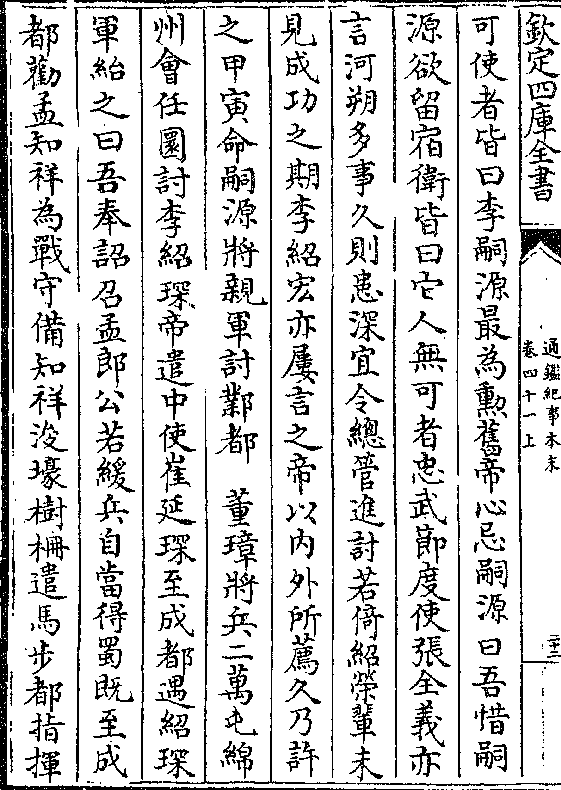 欽定四庫全書
通鑑紀事本末
卷四十一上
二十二
可使者皆曰李嗣源最為勲舊帝心忌嗣源曰吾惜嗣
源欲留宿衛皆曰它人無可者忠武節度使張全義亦
言河朔多事久則患深宜令總管進討若倚紹榮輩未
見成功之期李紹宏亦屢言之帝以内外所薦久乃許
之甲寅命嗣源將親軍討鄴都 董璋將兵二萬屯綿
州會任圜討李紹琛帝遣中使崔延琛至成都遇紹琛
軍紿之曰吾奉詔召孟郎公若緩兵自當得蜀既至成
都勸孟知祥為戰守備知祥浚壕樹柵遣馬步都指揮